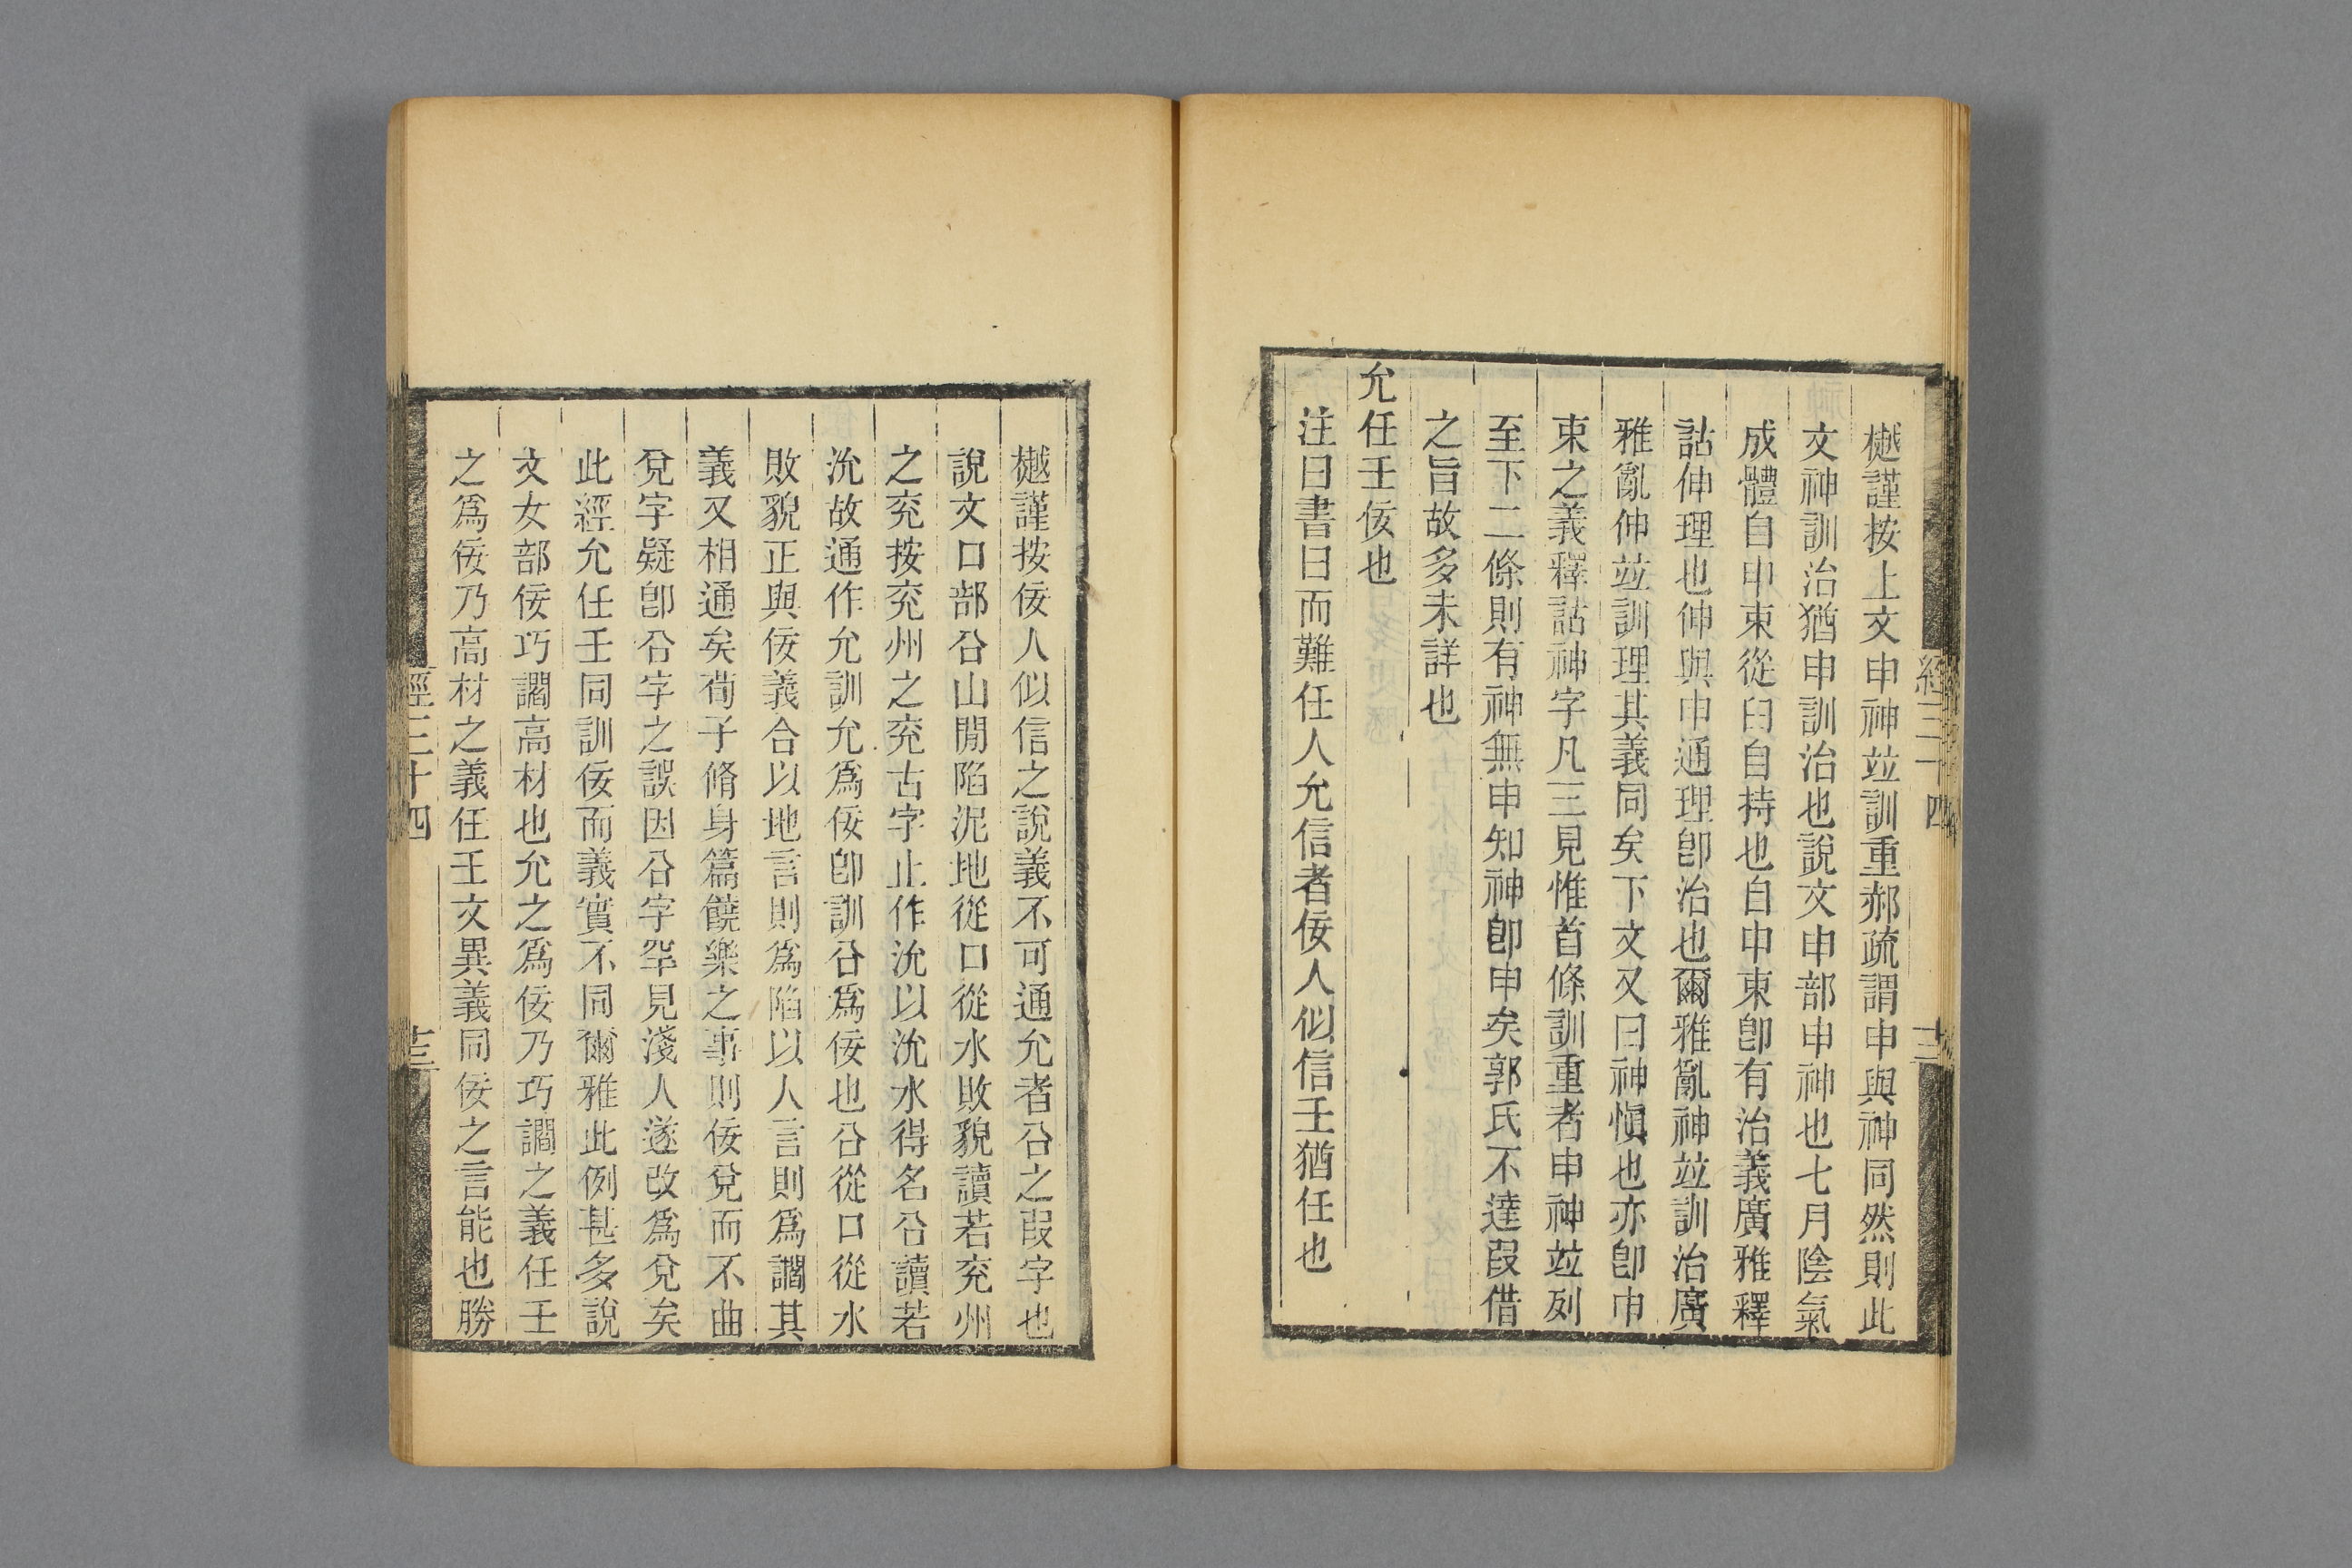 樾謹按上文申神竝訓重郝疏謂申與神同然則此
文神訓治猶申訓治也說文申部申神也七月陰氣
成體自申束從臼自持也自申束卽有治義廣雅釋
詁伸理也伸與申通理卽治也爾雅亂神竝訓治廣
雅亂伸竝訓理其義同矣下文又曰神愼也亦卽申
束之義釋詁神字凡三見惟首條訓重者申神竝列
至下二條則有神無申知神卽申矣郭氏不達叚借
之旨故多未詳也
允任壬佞也
注曰書曰而難任人允信者佞人似信壬猶任也
經三十四
十三
樾謹按佞人似信之說義不可通允者㕣之叚字也
說文口部㕣山閒陷泥地從口從水敗貌讀若兖州
之兖按兖州之兖古字止作沇以沇水得名㕣讀若
沇故通作允訓允爲佞卽訓㕣爲佞也㕣從口從水
敗貌正與佞義合以地言則爲陷以人言則爲讇其
義又相通矣荀子脩身篇饒樂之事則佞兌而不曲
兌字疑卽㕣字之誤因㕣字罕見淺人遂改爲兌矣
此經允任壬同訓佞而義實不同爾雅此例甚多說
文女部佞巧讇高材也允之爲佞乃巧讇之義任壬
之爲佞乃高材之義任壬文異義同佞之言能也勝
經三十四
十三